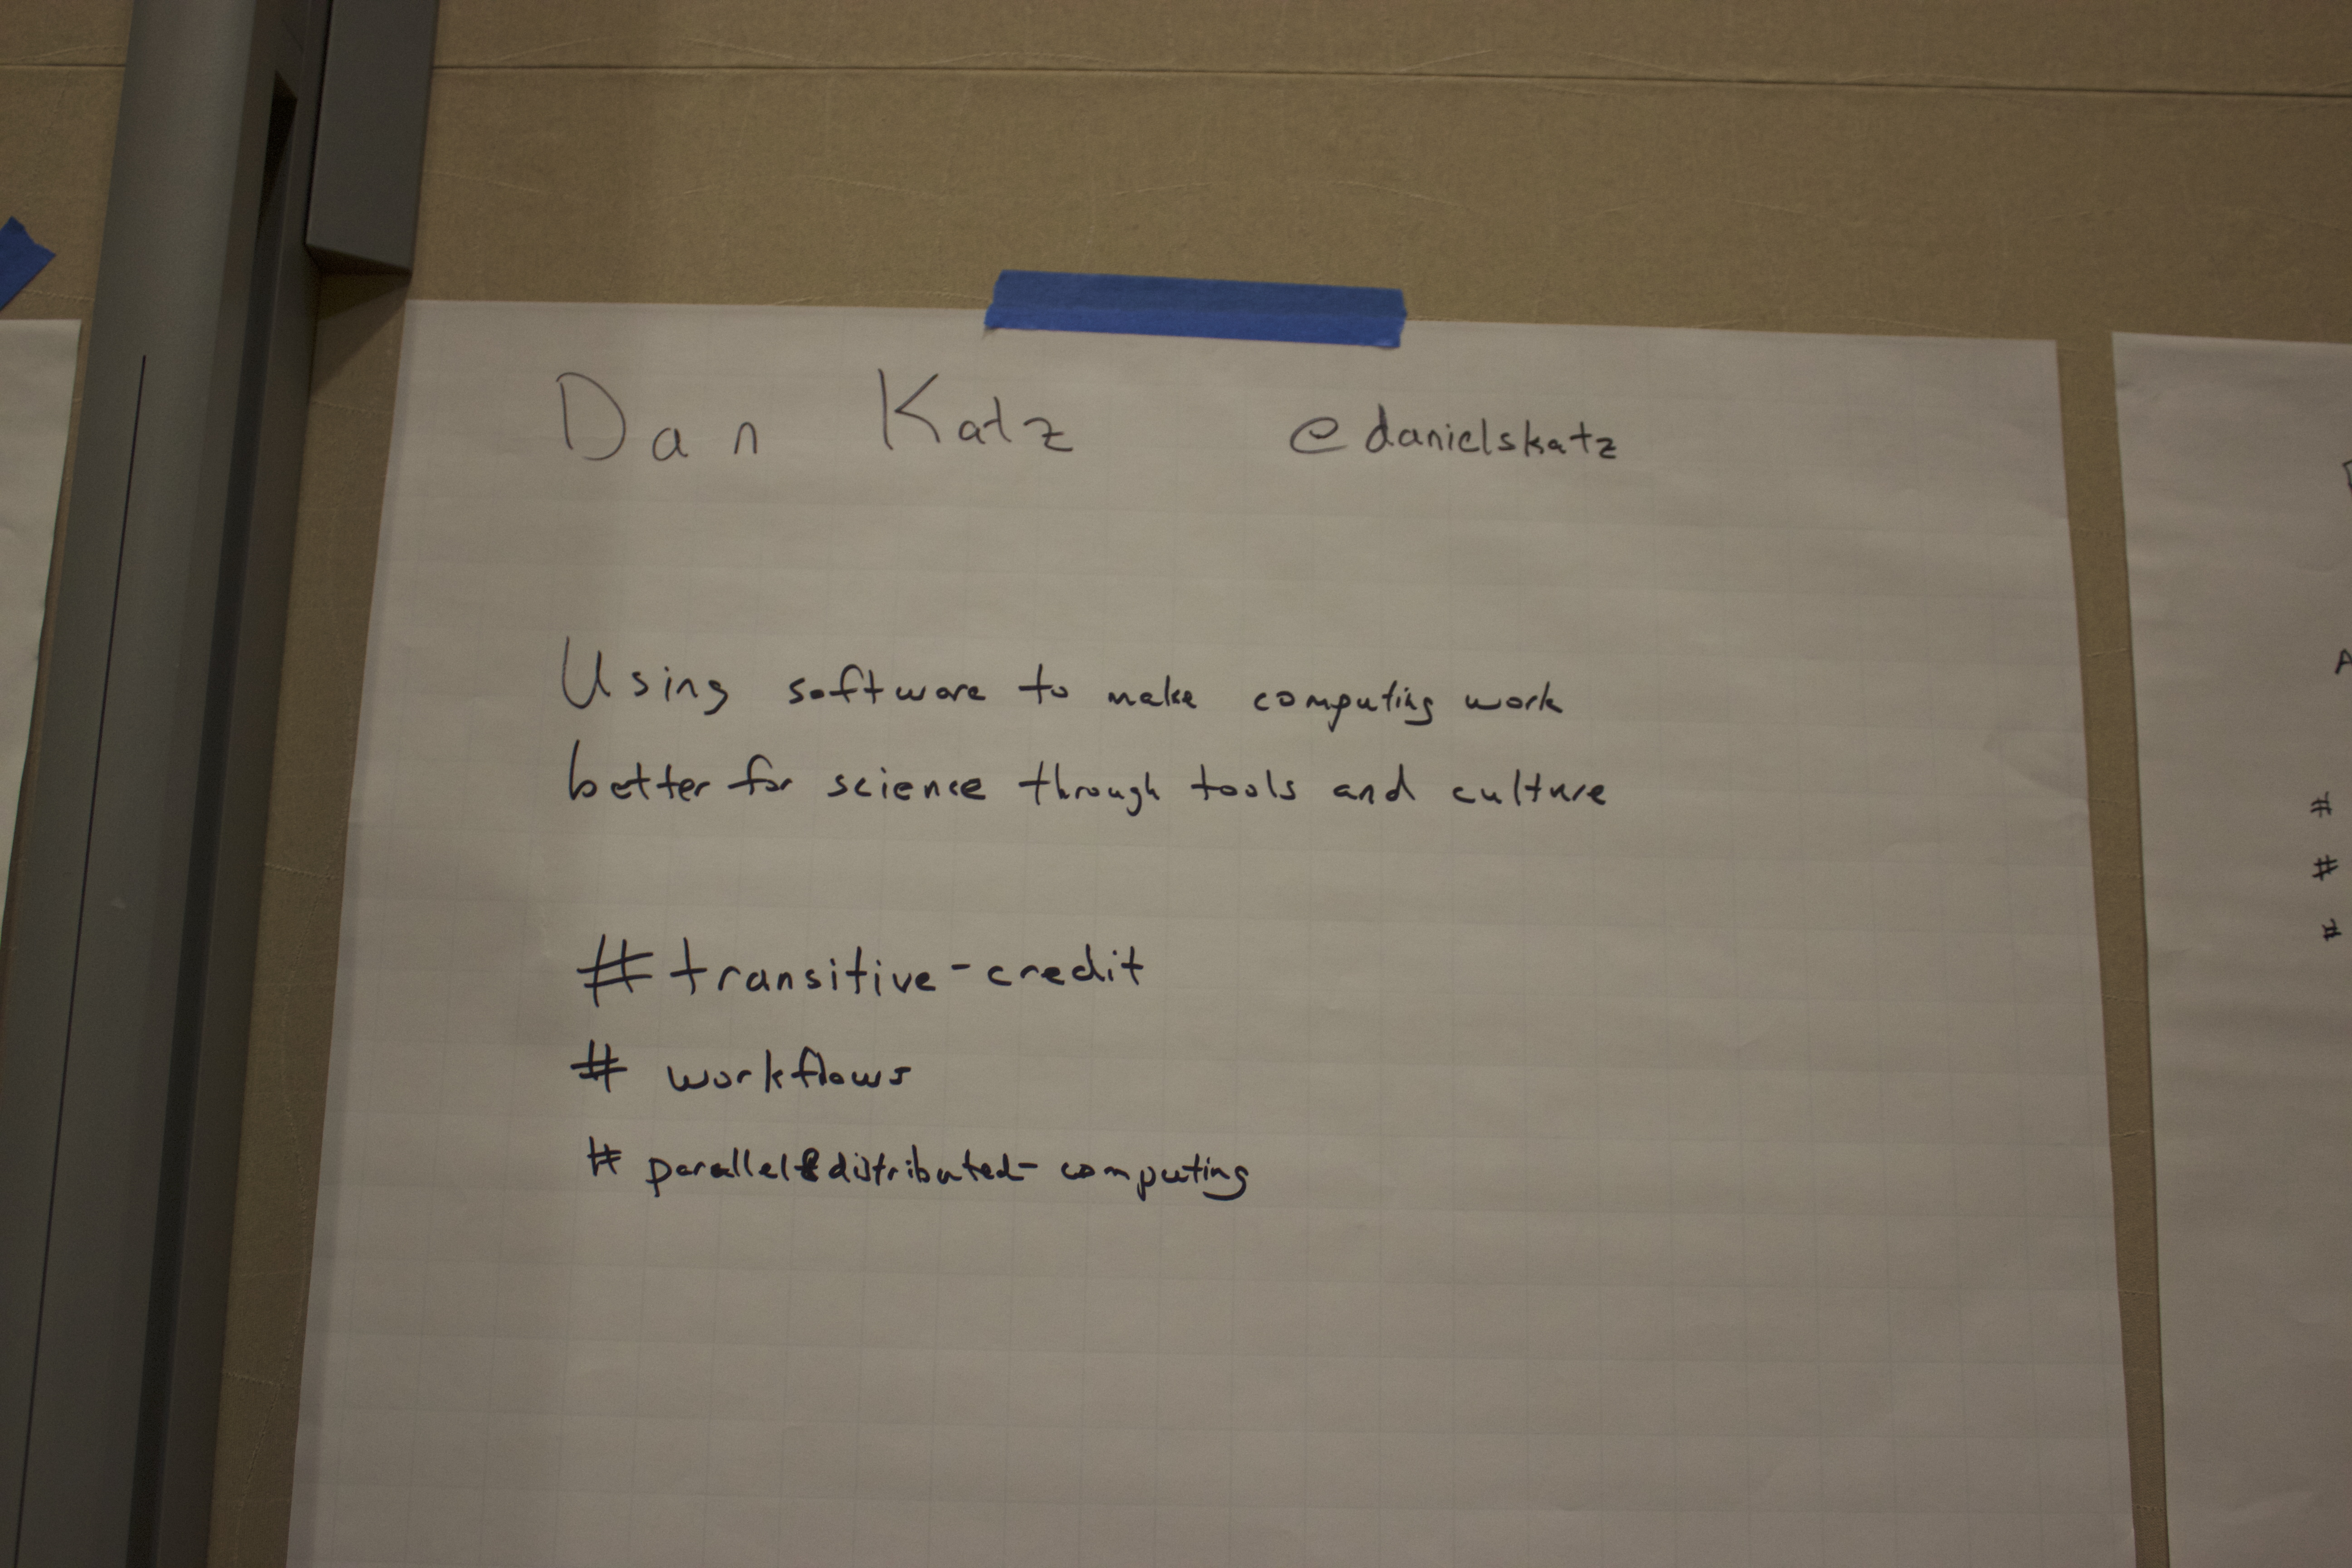 Dan Katz @danielskatz
Using software to make computing work
better for science through tools and culture
#transitive-credit
# workflows
# parallel&distributed-computing
A
#
#
#